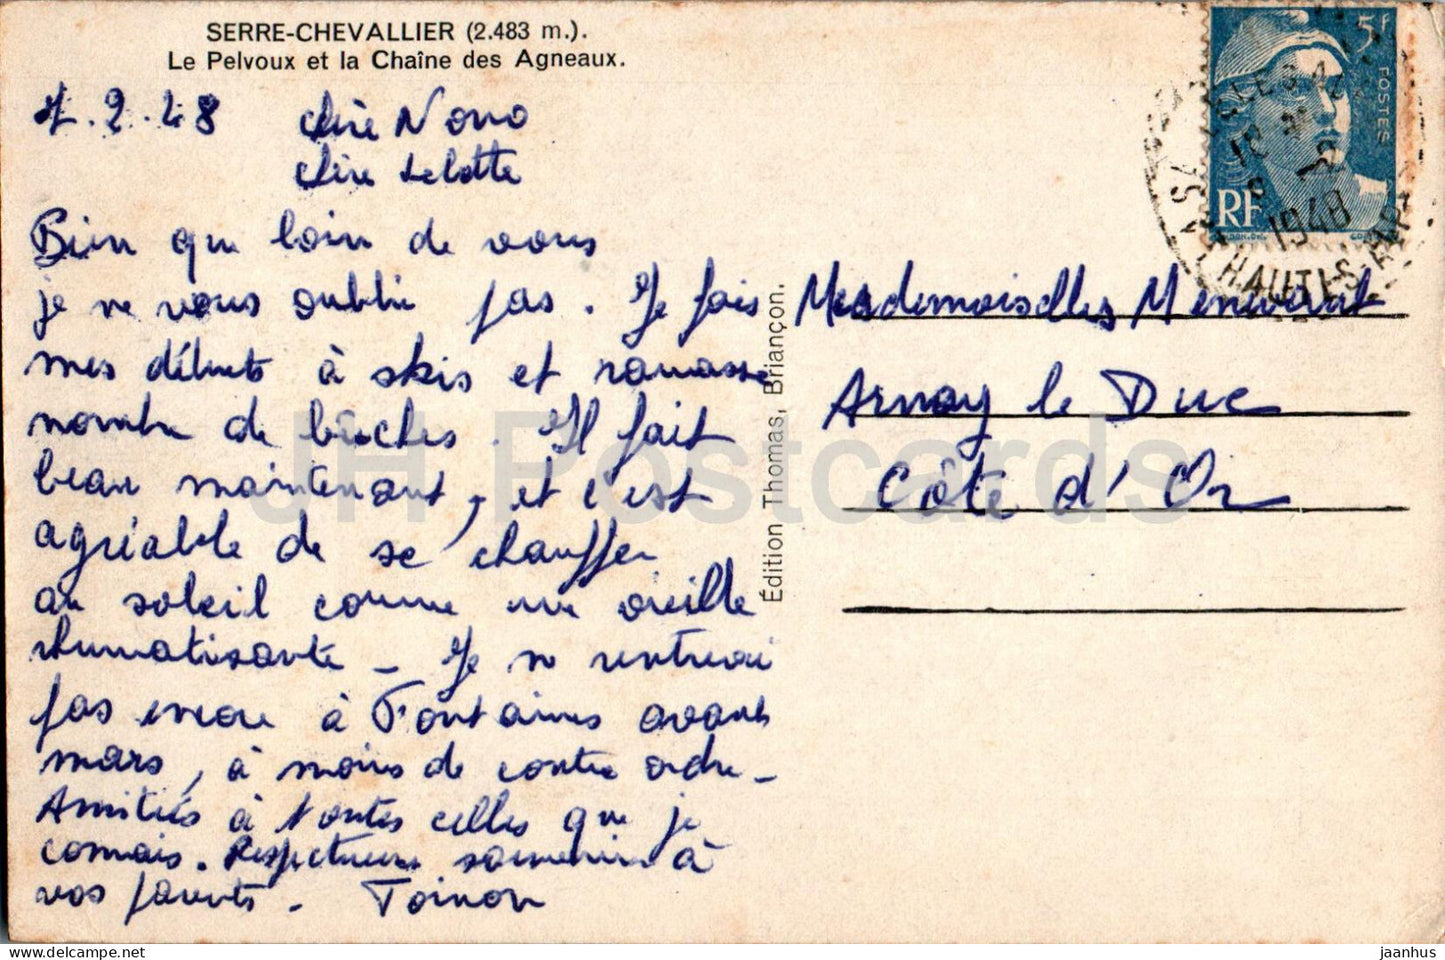 SERRE-CHEVALLIER (2.483 m.).
Le Pelvoux et la Chaîne des Agneaux.
7.2.48 chère Nono
chère Lelotte
Bien que loin de vous
je ne vous oublie pas. Je fais
mes débuts à skis et ramasse
nombre de bûches. Il fait
beau maintenant, et c'est
agréable de se chauffer
au soleil comme une oreille
rhumatisante - Je ne rentrerai
pas encore à Fontaines avant
mars, à moins de contre ordre -
Amitiés à toutes celles que je
connais. Respectueux souvenir à
vos parents - Toinon
Édition Thomas, Briançon.
5f
POSTES
RF
1948
HAUTES-ALPES
Mesdemoiselles
Arnay le Duc
Côte d'Or
JH Postcards
jaanhus